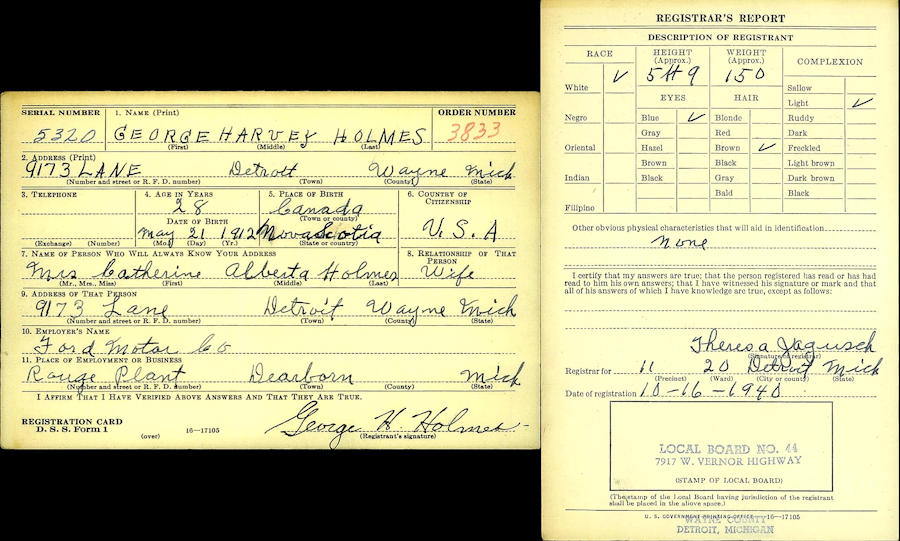 SERIAL NUMBER 1. NAME (Print) ORDER NUMBER
5320 GEORGE HARVEY HOLMES 3833
(First) (Middle) (Last)
2. ADDRESS (Print)
9173 LANE Detroit Wayne Mich
(Number and street or R. F. D. number) (Town) (County) (State)
3. TELEPHONE 4. AGE IN YEARS 5. PLACE OF BIRTH 6. COUNTRY OF CITIZENSHIP
28 Canada
(Town or county)
DATE OF BIRTH
May 21 1912 Nova Scotia U.S.A
(Exchange) (Number) (Mo.) (Day) (Yr.) (State or country)
7. NAME OF PERSON WHO WILL ALWAYS KNOW YOUR ADDRESS 8. RELATIONSHIP OF THAT PERSON
Mrs Catherine Alberta Holmes Wife
(Mr., Mrs., Miss) (First) (Middle) (Last)
9. ADDRESS OF THAT PERSON
9173 Lane Detroit Wayne Mich
(Number and street or R. F. D. number) (Town) (County) (State)
10. EMPLOYER'S NAME
Ford Motor Co
11. PLACE OF EMPLOYMENT OR BUSINESS
Rouge Plant Dearborn Mich
(Number and street or R. F. D. number) (Town) (County) (State)
I AFFIRM THAT I HAVE VERIFIED ABOVE ANSWERS AND THAT THEY ARE TRUE.
REGISTRATION CARD
D. S. S. Form 1 (over) 16—17105
George H. Holmes
(Registrant's signature)
REGISTRAR'S REPORT
DESCRIPTION OF REGISTRANT
RACE HEIGHT (Approx.) WEIGHT (Approx.) COMPLEXION
White ✓ 5 ft 9 150 Sallow
EYES HAIR Light ✓
Negro Blue ✓ Blonde Ruddy
Gray Red Dark
Oriental Hazel Brown ✓ Freckled
Brown Black Light brown
Indian Black Gray Dark brown
Bald Black
Filipino
Other obvious physical characteristics that will aid in identification
None
I certify that my answers are true; that the person registered has read or has had
read to him his own answers; that I have witnessed his signature or mark and that
all of his answers of which I have knowledge are true, except as follows:
Theresa Jagusch
(Signature of registrar)
Registrar for 11 20 Detroit Mich
(Precinct) (Ward) (City or county) (State)
Date of registration 10-16-1940
LOCAL BOARD NO. 44
7917 W. VERNOR HIGHWAY
(STAMP OF LOCAL BOARD)
(The stamp of the Local Board having jurisdiction of the registrant
shall be placed in the above space.)
U. S. GOVERNMENT PRINTING OFFICE 16—17105
WAYNE COUNTY
DETROIT, MICHIGAN